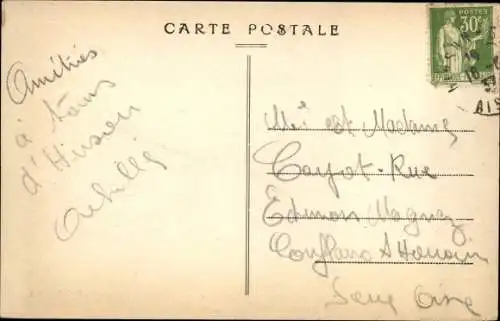 CARTE POSTALE
POSTES
30c
Amitiés
à tous
d'Hirson
Achille
Mr et Madame
Cayot-Rue
Edmon Magnez
Conflans St Honorin
Seine Oise
AIS